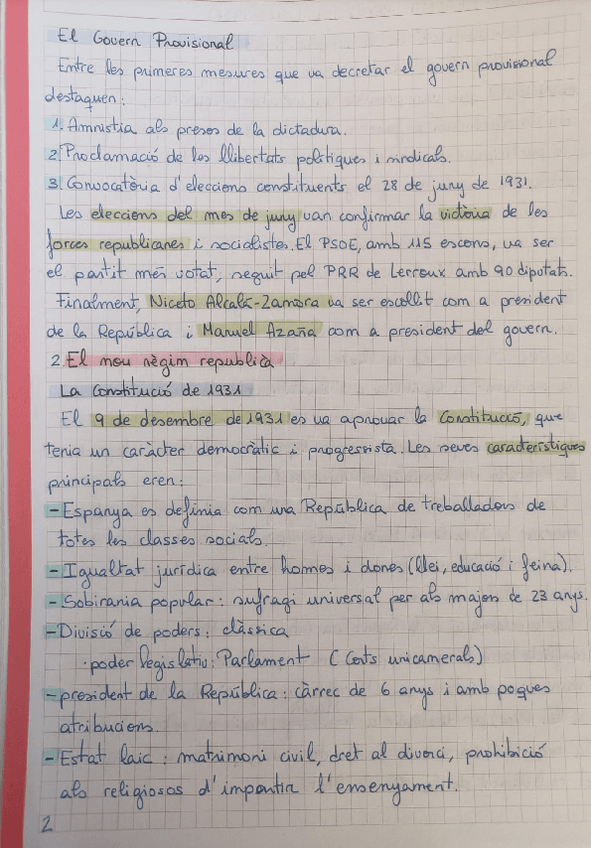 El Govern Provisional
Entre les primeres mesures que va decretar el govern provisional
destaquen:
1. Amnistia als presos de la dictadura.
2. Proclamació de les llibertats polítiques i sindicals.
3. Convocatòria d'eleccions constituents el 28 de juny de 1931.
Les eleccions del mes de juny van confirmar la victòria de les
forces republicanes i socialistes. El PSOE, amb 115 escons, va ser
el partit més votat, seguit pel PRR de Lerroux amb 90 diputats.
Finalment, Niceto Alcalá-Zamora va ser escollit com a president
de la República i Manuel Azaña com a president del govern.
2. El nou règim republicà
La Constitució de 1931
El 9 de desembre de 1931 es va aprovar la Constitució, que
tenia un caràcter democràtic i progressista. Les seves característiques
principals eren:
- Espanya es definia com una República de treballadors de
totes les classes socials.
- Igualtat jurídica entre homes i dones (llei, educació i feina).
- Sobirania popular: sufragi universal per als majors de 23 anys.
- Divisió de poders: clàssica
· poder legislatiu: Parlament (Corts unicamerals)
- president de la República: càrrec de 6 anys i amb poques
atribucions.
- Estat laic: matrimoni civil, dret al divorci, prohibició
als religiosos d'impartir l'ensenyament.
2